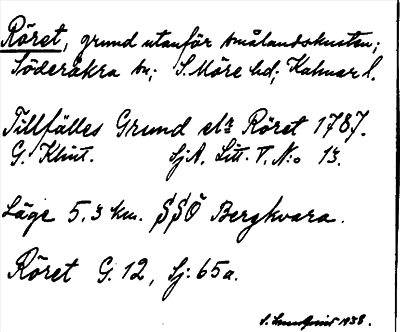 Röret, grund utanför smålandskusten;
Söderåkra sn; S. Möre hd; Kalmar l.
Tillfälles Grund elr Röret 1787.
G. Klint. SjA, Litt. T. N:o 13.
Läge 5,3 km. SSÖ Bergkvara.
Röret G. 12, Sj: 65a.
S. 1938.